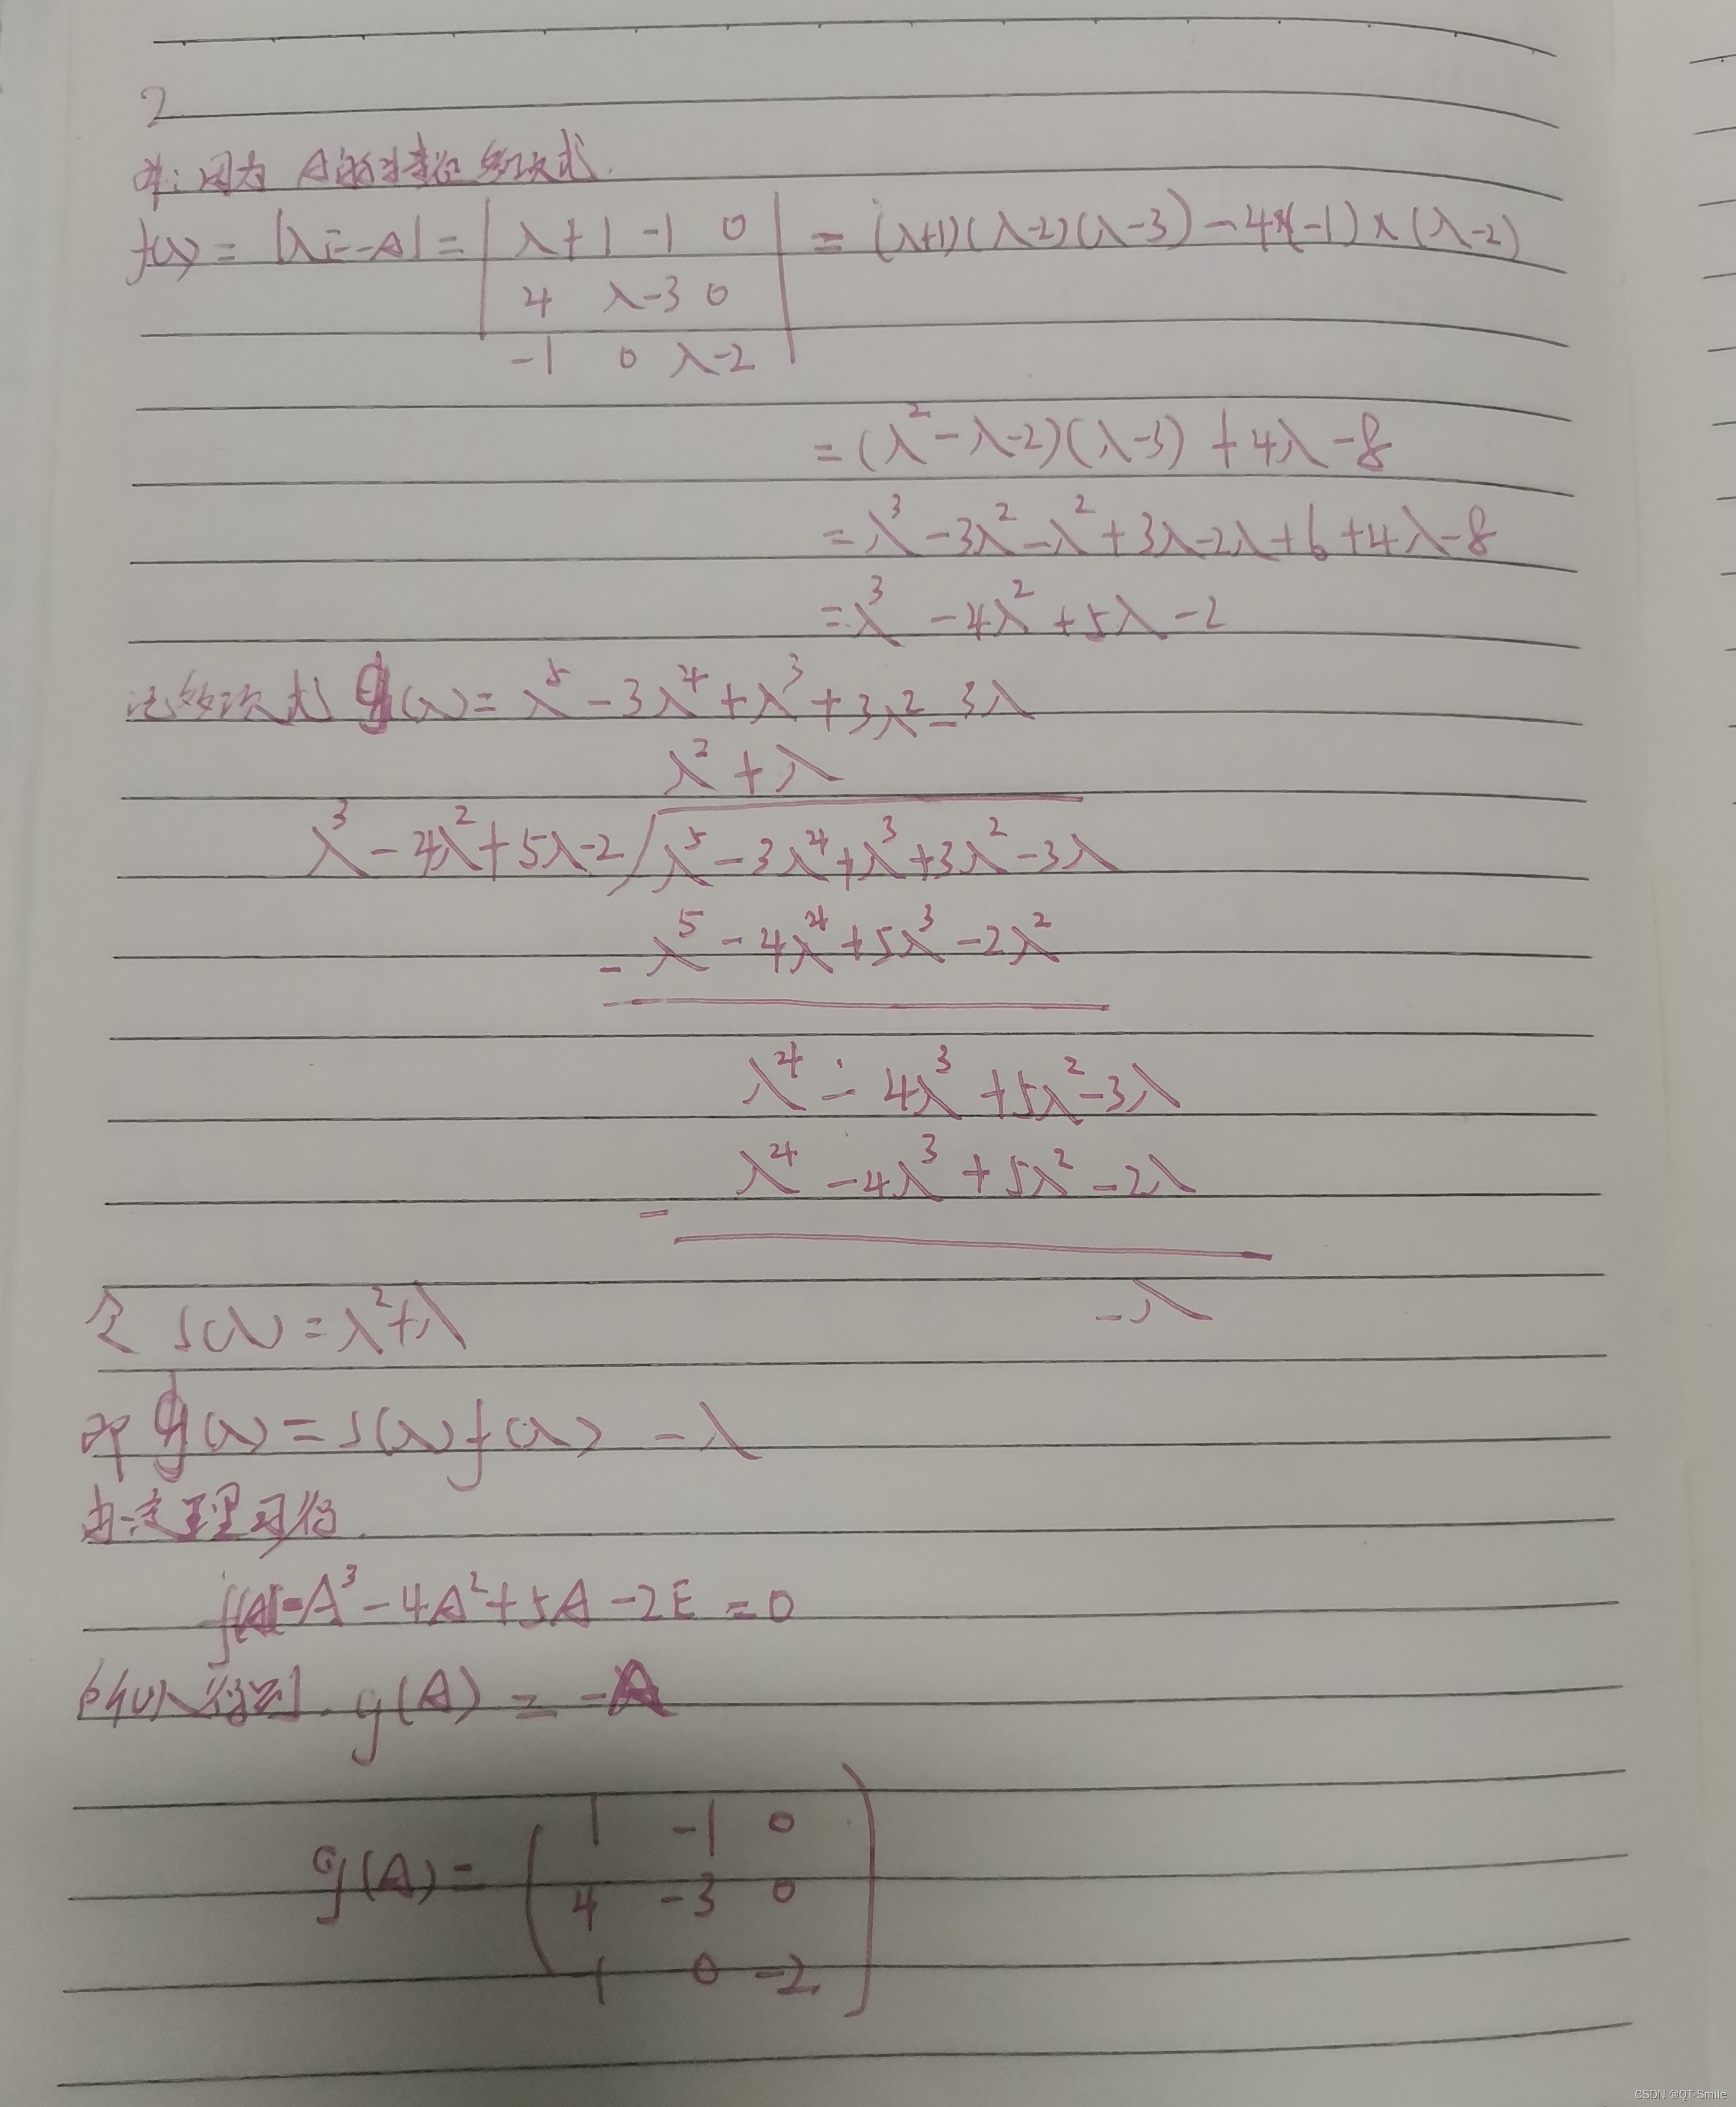 2
解:因为 A的特征多项式
f(λ) = |λE-A| = | λ+1 -1 0 | = (λ+1)(λ-2)(λ-3) - 4×(-1)×(λ-2)
4 λ-3 0
-1 0 λ-2
= (λ²-λ-2)(λ-3) + 4λ-8
= λ³-3λ²-λ²+3λ-2λ+6+4λ-8
= λ³-4λ²+5λ-2
记多项式 g(λ) = λ⁵-3λ⁴+λ³+3λ²-3λ
λ²+λ
λ³-4λ²+5λ-2 λ⁵-3λ⁴+λ³+3λ²-3λ
- λ⁵-4λ⁴+5λ³-2λ²
λ⁴-4λ³+5λ²-3λ
λ⁴-4λ³+5λ²-2λ
-
-λ
令 s(λ) = λ²+λ
即 g(λ) = s(λ)f(λ) -λ
由定理可得
f(A)=A³-4A²+5A-2E=0
所以得到 g(A) = -A
g(A) = ( 1 -1 0 )
4 -3 0
-1 0 -2
CSDN @QT-Smile